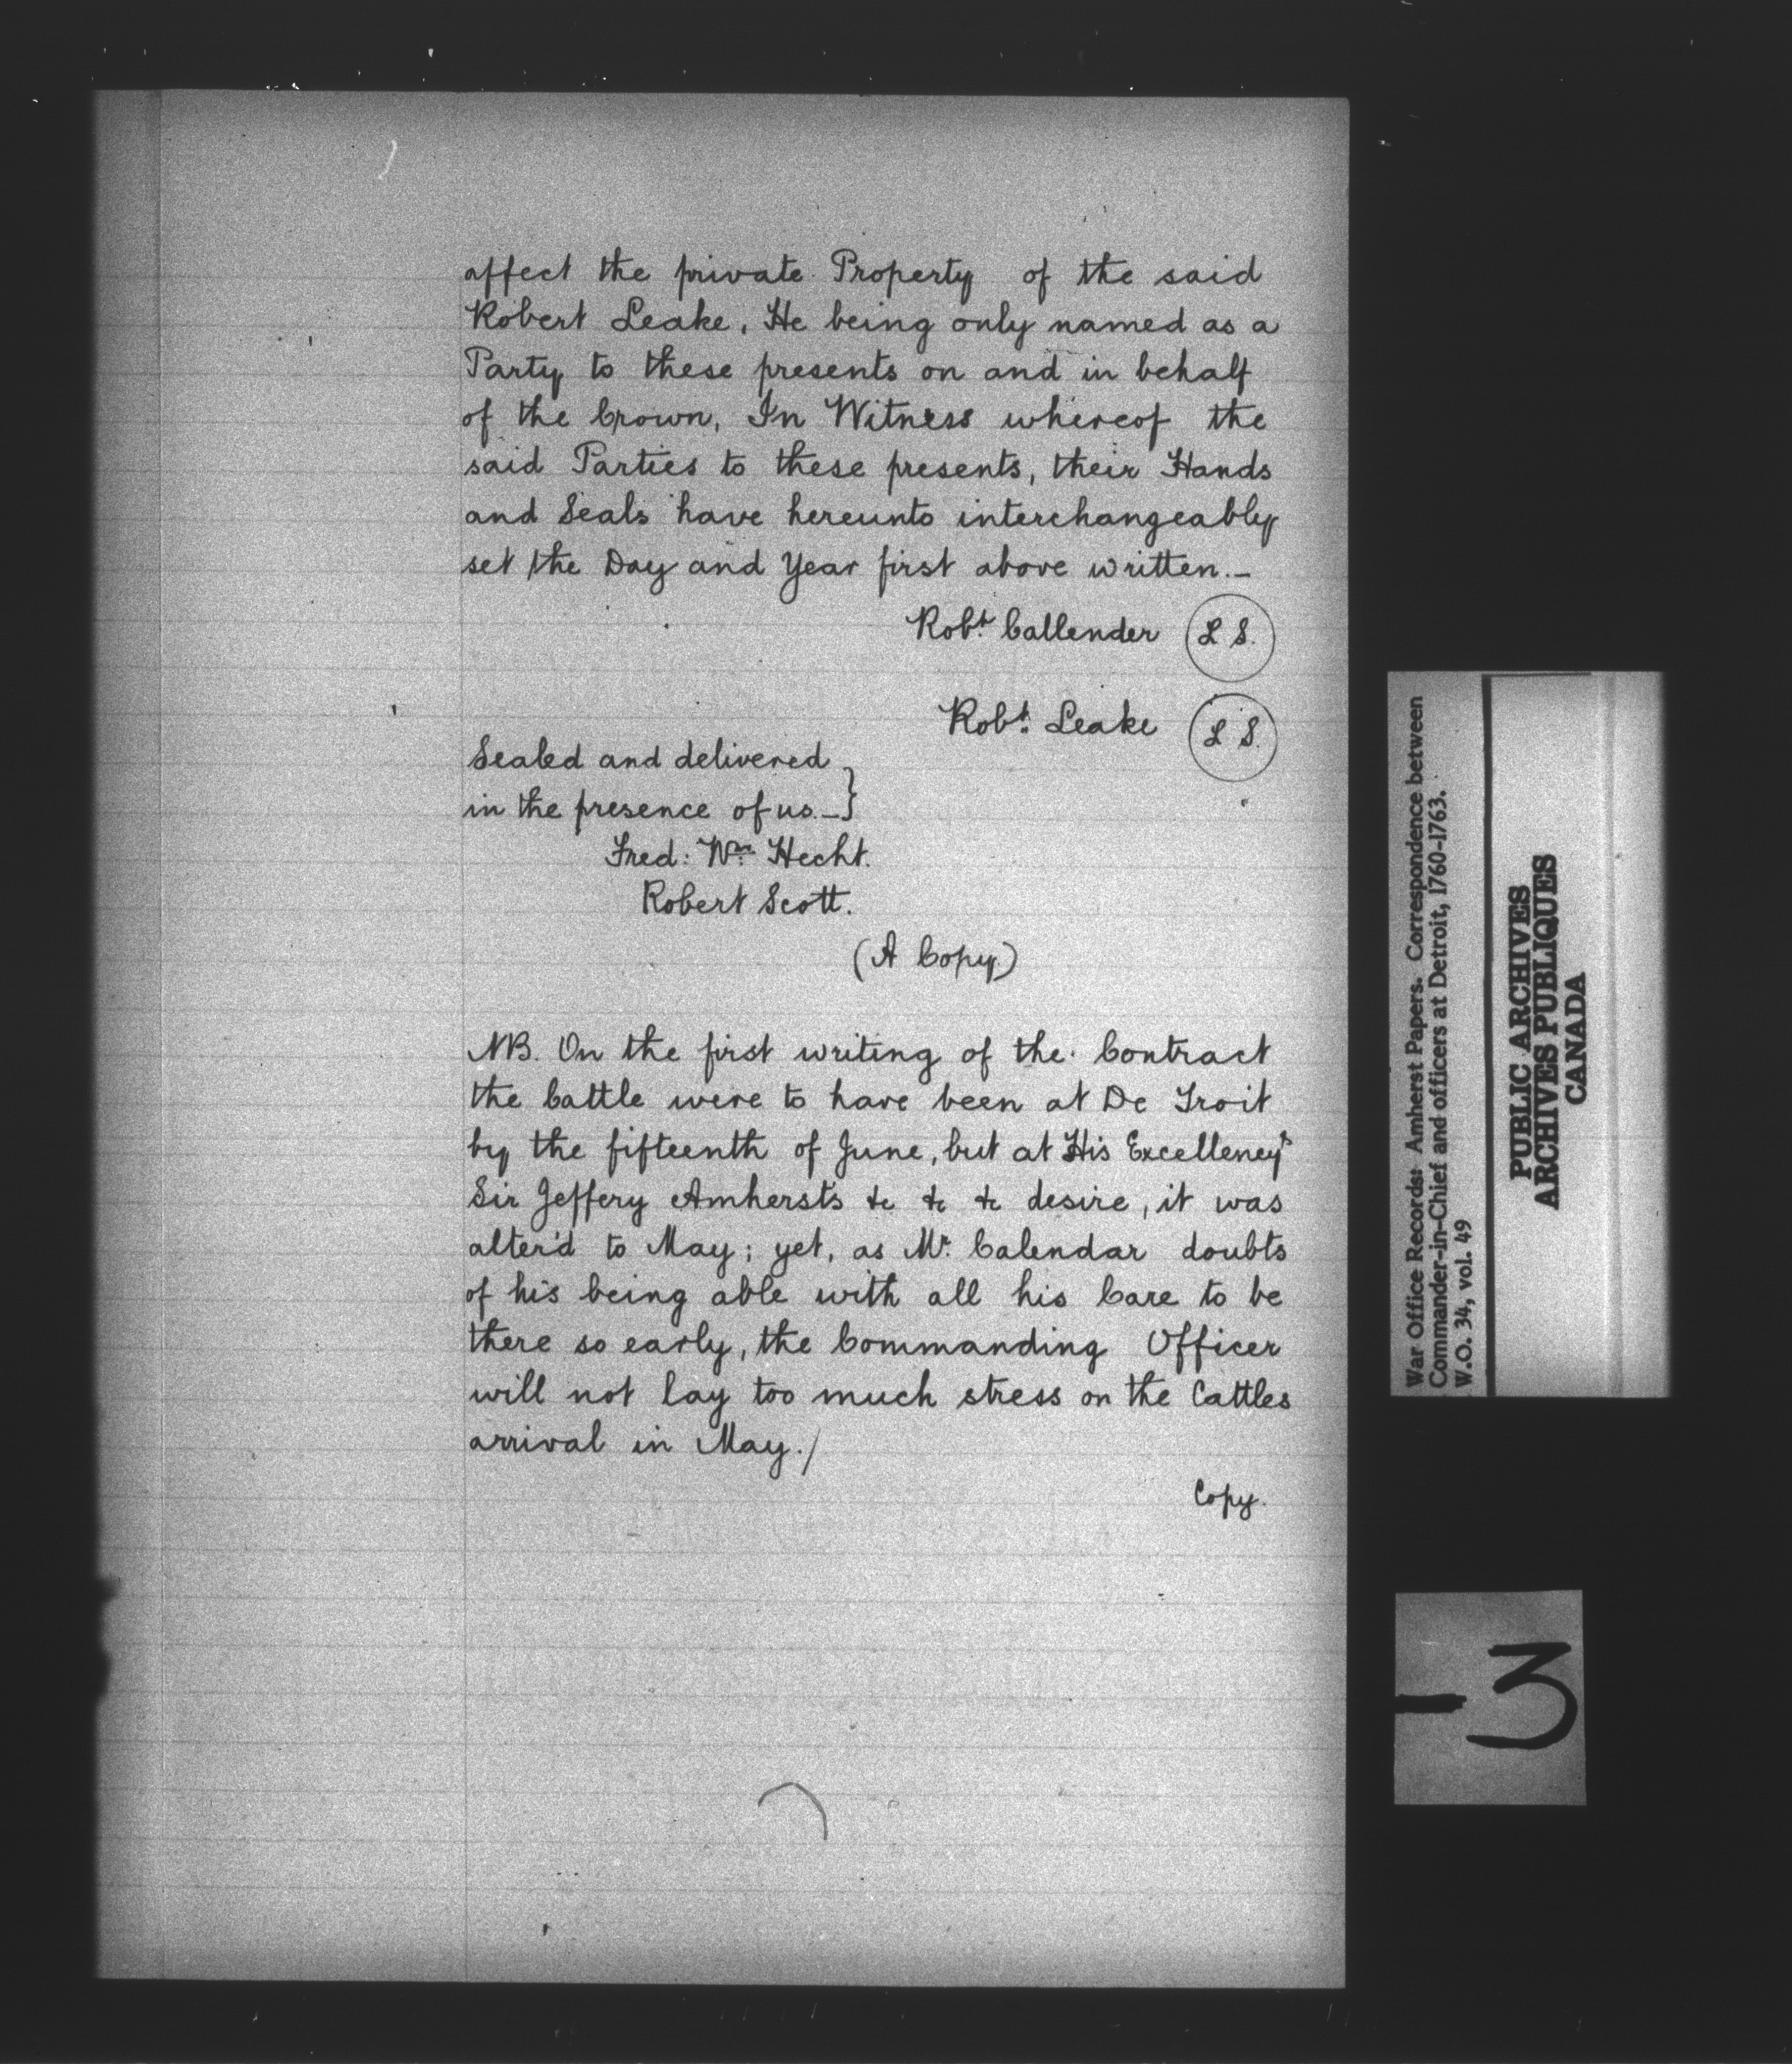 affect the private Property of the said
Robert Leake, He being only named as a
Party to these presents on and in behalf
of the Crown, In Witness whereof the
said Parties to these presents, their Hands
and Seals have hereunto interchangeably
set the Day and Year first above written.—
Robt. Callender L S.
Robt. Leake L S.
Sealed and delivered
in the presence of us.— }
Fred: Wm. Hecht.
Robert Scott.
(A Copy)
NB. On the first writing of the Contract
the Cattle were to have been at De Troit
by the fifteenth of June, but at His Excellencys
Sir Jeffery Amherst's &c &c &c desire, it was
alter'd to May; yet, as Mr. Calendar doubts
of his being able with all his Care to be
there so early, the Commanding Officer
will not lay too much stress on the Cattles
arrival in May./
Copy.
War Office Records: Amherst Papers. Correspondence between
Commander-in-Chief and officers at Detroit, 1760-1763.
W.O. 34, vol. 49
PUBLIC ARCHIVES
ARCHIVES PUBLIQUES
CANADA
-3